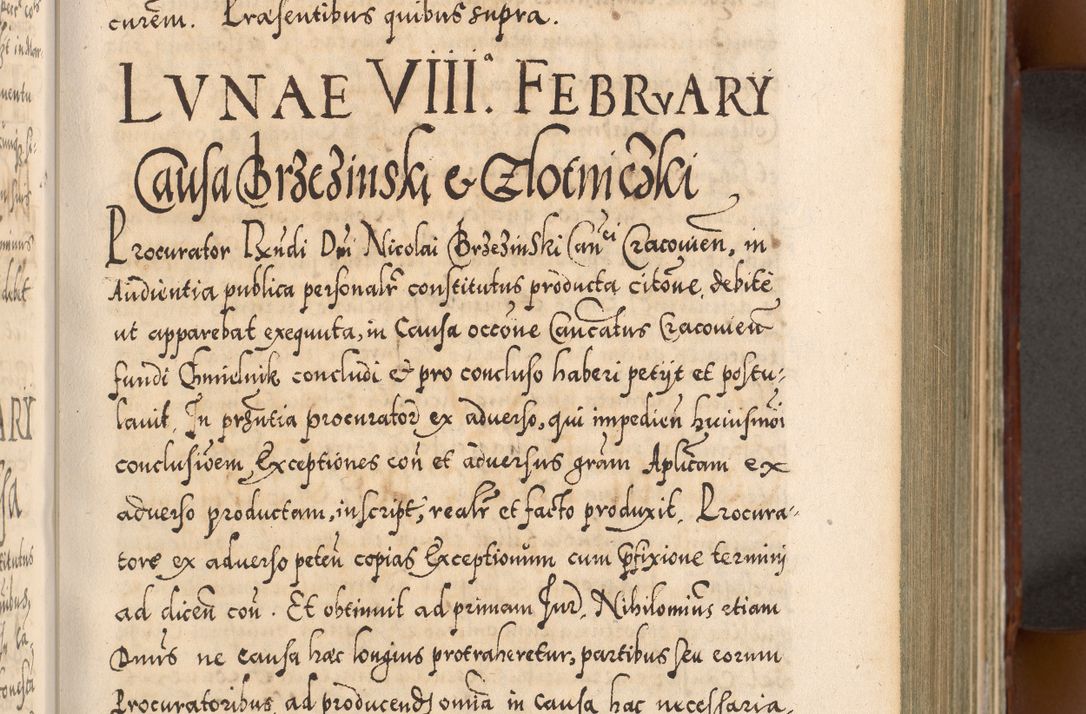 curem. Præsentibus quibus supra.
LVNAE VIII.ª FEBRvARY
Causa Brzezinski & Zlotniczki
Procurator Rndi Dni Nicolai Brzezinski Canci Cracovien, in
Audientia publica personalr constitutus producta citone, debite
ut apparebat exequuta, in Causa occone Caucatus Cracovien
fundi Chmielnik concludi et pro concluso haberi petijt et postu-
lavit. In prntia procurator ex adverso, qui impedien huiusmoi
conclusionem Exceptiones con et adversus gram Aplicam ex
adverso productam, in script, realr et facto produxit. Procura-
tore ex adverso peten copias Exceptionum cum pfixione termini
ad dicen con. Et obtinuit ad primam Jur. Nihilominus etiam
Dnus ne causa hæc longius protraheretur, partibus seu eorum
Procuratoribus ad producend omia in causa hac necessaria.